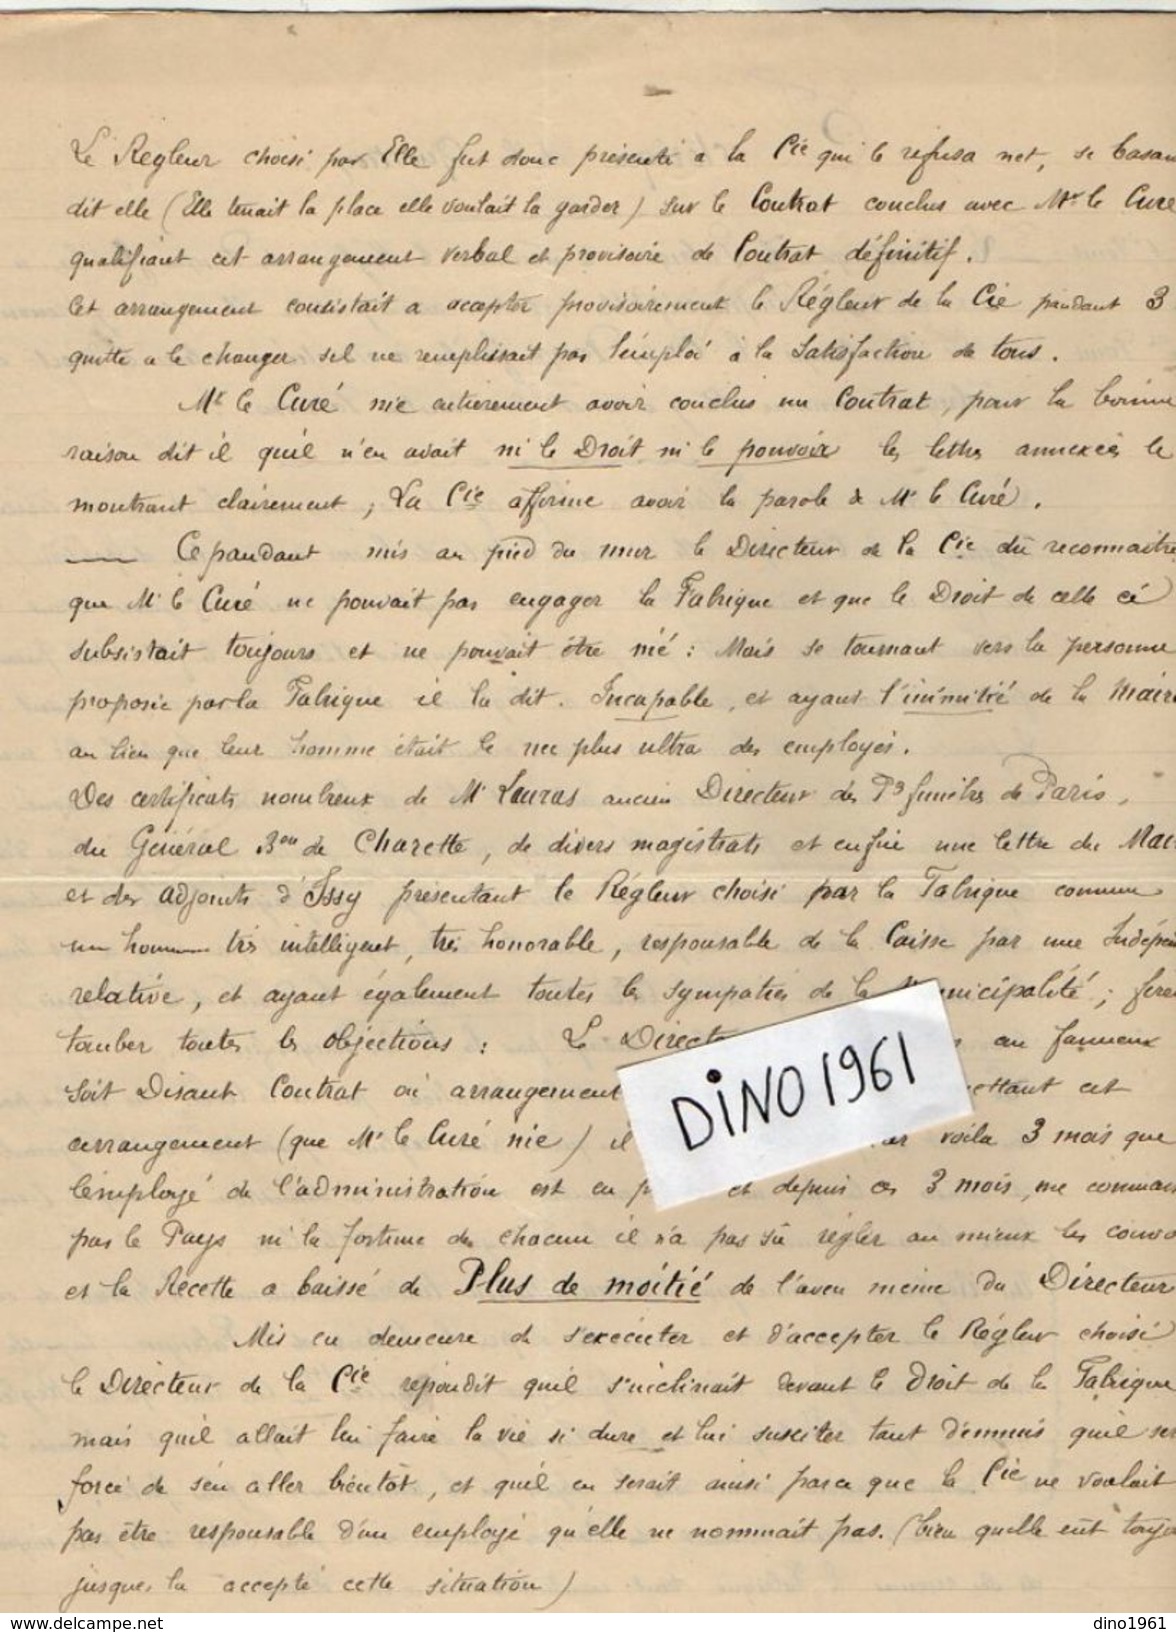 Le Régleur choisi par Elle fut donc présenté a la Cie qui le refusa net, se basan
dit elle (Elle tenait la place elle voulait la garder) sur le Contrat conclus avec Mr le Curé
qualifiant cet arrangement verbal et provisoire de Contrat définitif.
Cet arrangement consistait a accepter provisoirement le Régleur de la Cie pendant 3
quitte a le changer sil ne remplissait pas l'emploi à la satisfaction de tous.
Mr le Curé nie entierement avoir conclus un Contrat, pour la bonne
raison dit il quil n'en avait ni le Droit ni le pouvoir les lettres annexées le
montrant clairement ; La Cie affirme avoir la parole de Mr le Curé.
Cependant mis au pied du mur le Directeur de la Cie dû reconnaitre
que Mr le Curé ne pouvait pas engager la Fabrique et que le Droit de celle ci
subsistait toujours et ne pouvait être nié : Mais se tournant vers la personne
proposée par la Fabrique il la dit. Incapable, et ayant l'inimitié de la Mairi
au lieu que leur homme était le nec plus ultra des employés.
Des certificats nombreux de Mr Lauras ancien Directeur des Ps funèbres de Paris,
du Général Bon de Charette, de divers magistrats et enfin une lettre du Mai
et des adjoints d'Issy présentant le Régleur choisi par la Fabrique comme
un homme très intelligent, très honorable, responsable de la Caisse par une Indépen
relative, et ayant également toutes les sympaties de la Municipalité ; fire
tomber toutes les objections : Le Direct au fameux
soit Disant Contrat ou arrangement ettant cet
arrangement (que Mr le Curé nie) il voila 3 mois que
l'employé de l'administration est en p et depuis ces 3 mois, ne connais
pas le Pays ni la fortune de chacun il n'a pas sû régler au mieux les convo
et la Recette a baissé de Plus de moitié de l'aveu meme du Directeur
Mis en demeure de s'exécuter et d'accepter le Régleur choisi
le Directeur de la Cie répondit quil s'inclinait devant le Droit de la Fabrique
mais quil allait lui faire la vie si dure et lui susciter tant d'ennuis quil ser
forcé de s'en aller bientôt, et quil en serait ainsi parce que la Cie ne voulait
pas être responsable d'un employé qu'elle ne nommait pas. (bien quelle eût toujo
jusques la accepté cette situation)
DINO 1961
www.delcampe.net
dino1961